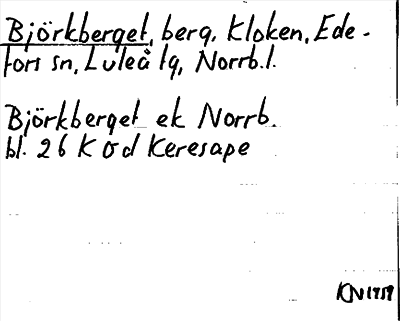 Björkberget, berg, Kloken, Ede-
fors sn, Luleå tg, Norrb.l.
Björkberget ek Norrb.
bl. 26 K o d Keresape
KN 1959